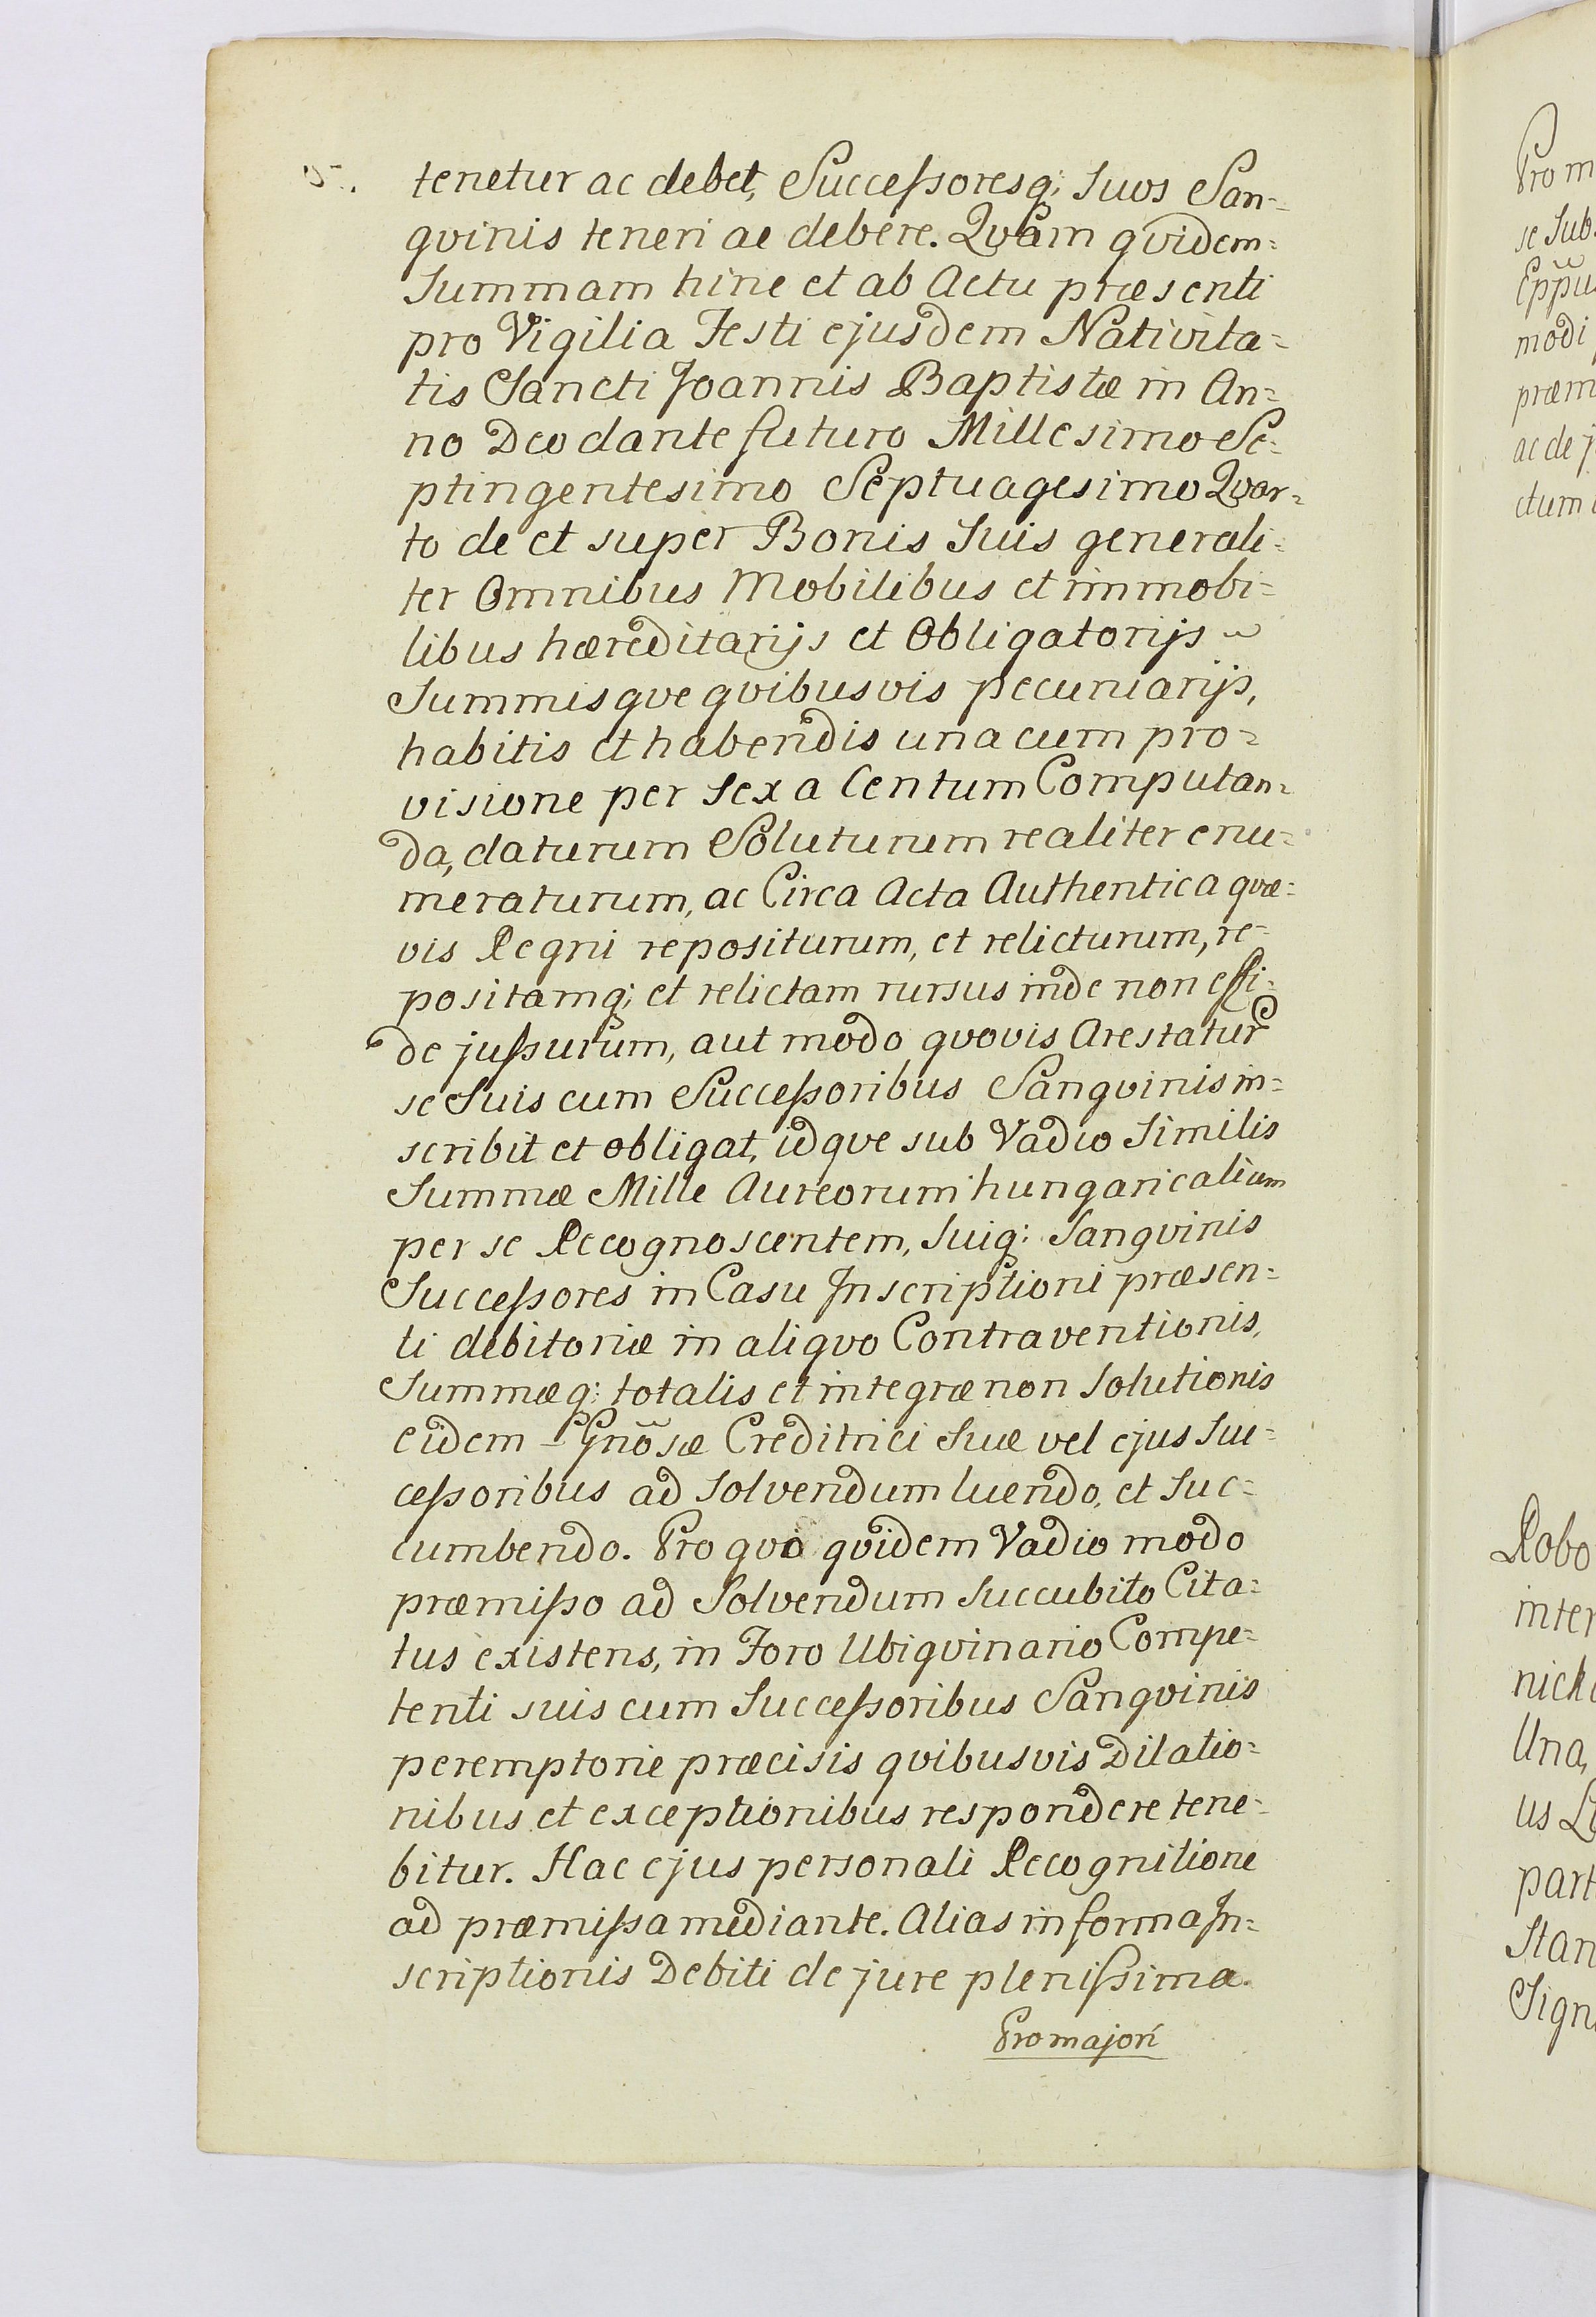 tenetur ac debet, Successoresq; Suos San=
gvinis teneri ac debere. Qvam qvidem=
Summam hinc et ab Actu præsenti
pro Vigilia Festi ejusdem Nativita=
tis Sancti Joannis Baptistæ in An=
no Deo dante futuro Millesimo Se=
ptingentesimo Septuagesimo Qvar=
to de et super Bonis Suis generali=
ter Omnibus Mobilibus et immobi=
libus hæreditarijs et Obligatorijs
Summisqve qvibusvis pecuniarijs,
habitis et habendis una cum pro=
visione per Sex a Centum Computan=
da, daturum Soluturum realiter enu=
meraturum, ac Circa Acta Authentica qvæ=
vis Regni repositurum, et relicturum, re=
positamq; et relictam rursus inde non effi=
de jussurum, aut modo qvovis Arestatur
se Suis cum Successoribus Sangvinis in=
scribit et obligat, idqve sub Vadio Similis
Summæ Mille Aureorum hungaricalium
per se Recognoscentem, Suiq; Sangvinis
Successores in Casu Inscriptioni præsen=
ti debitoriæ in aliqvo Contraventionis,
Summæq; totalis et integræ non Solutionis
eidem Gnosæ Creditrici Suæ vel ejus Suc=
cessoribus ad Solvendum luendo, et Suc=
cumbendo. Pro qvo qvidem Vadio modo
præmisso ad Solvendum Succubito Cita=
tus existens, in Foro Ubiqvinario Compe=
tenti suis cum Successoribus Sangvinis
peremptorie præcisis qvibusvis Dilatio=
nibus et exceptionibus respondere tene=
bitur. Hac ejus personali Recognitione
ad præmissa mediante. Alias in forma In=
scriptionis Debiti de jure plenissima.
Pro majori
Pro m
se Sub
modi
præm
ac de j
ctum
Robo
inter
nick
Una,
us
part
Stan
Sign